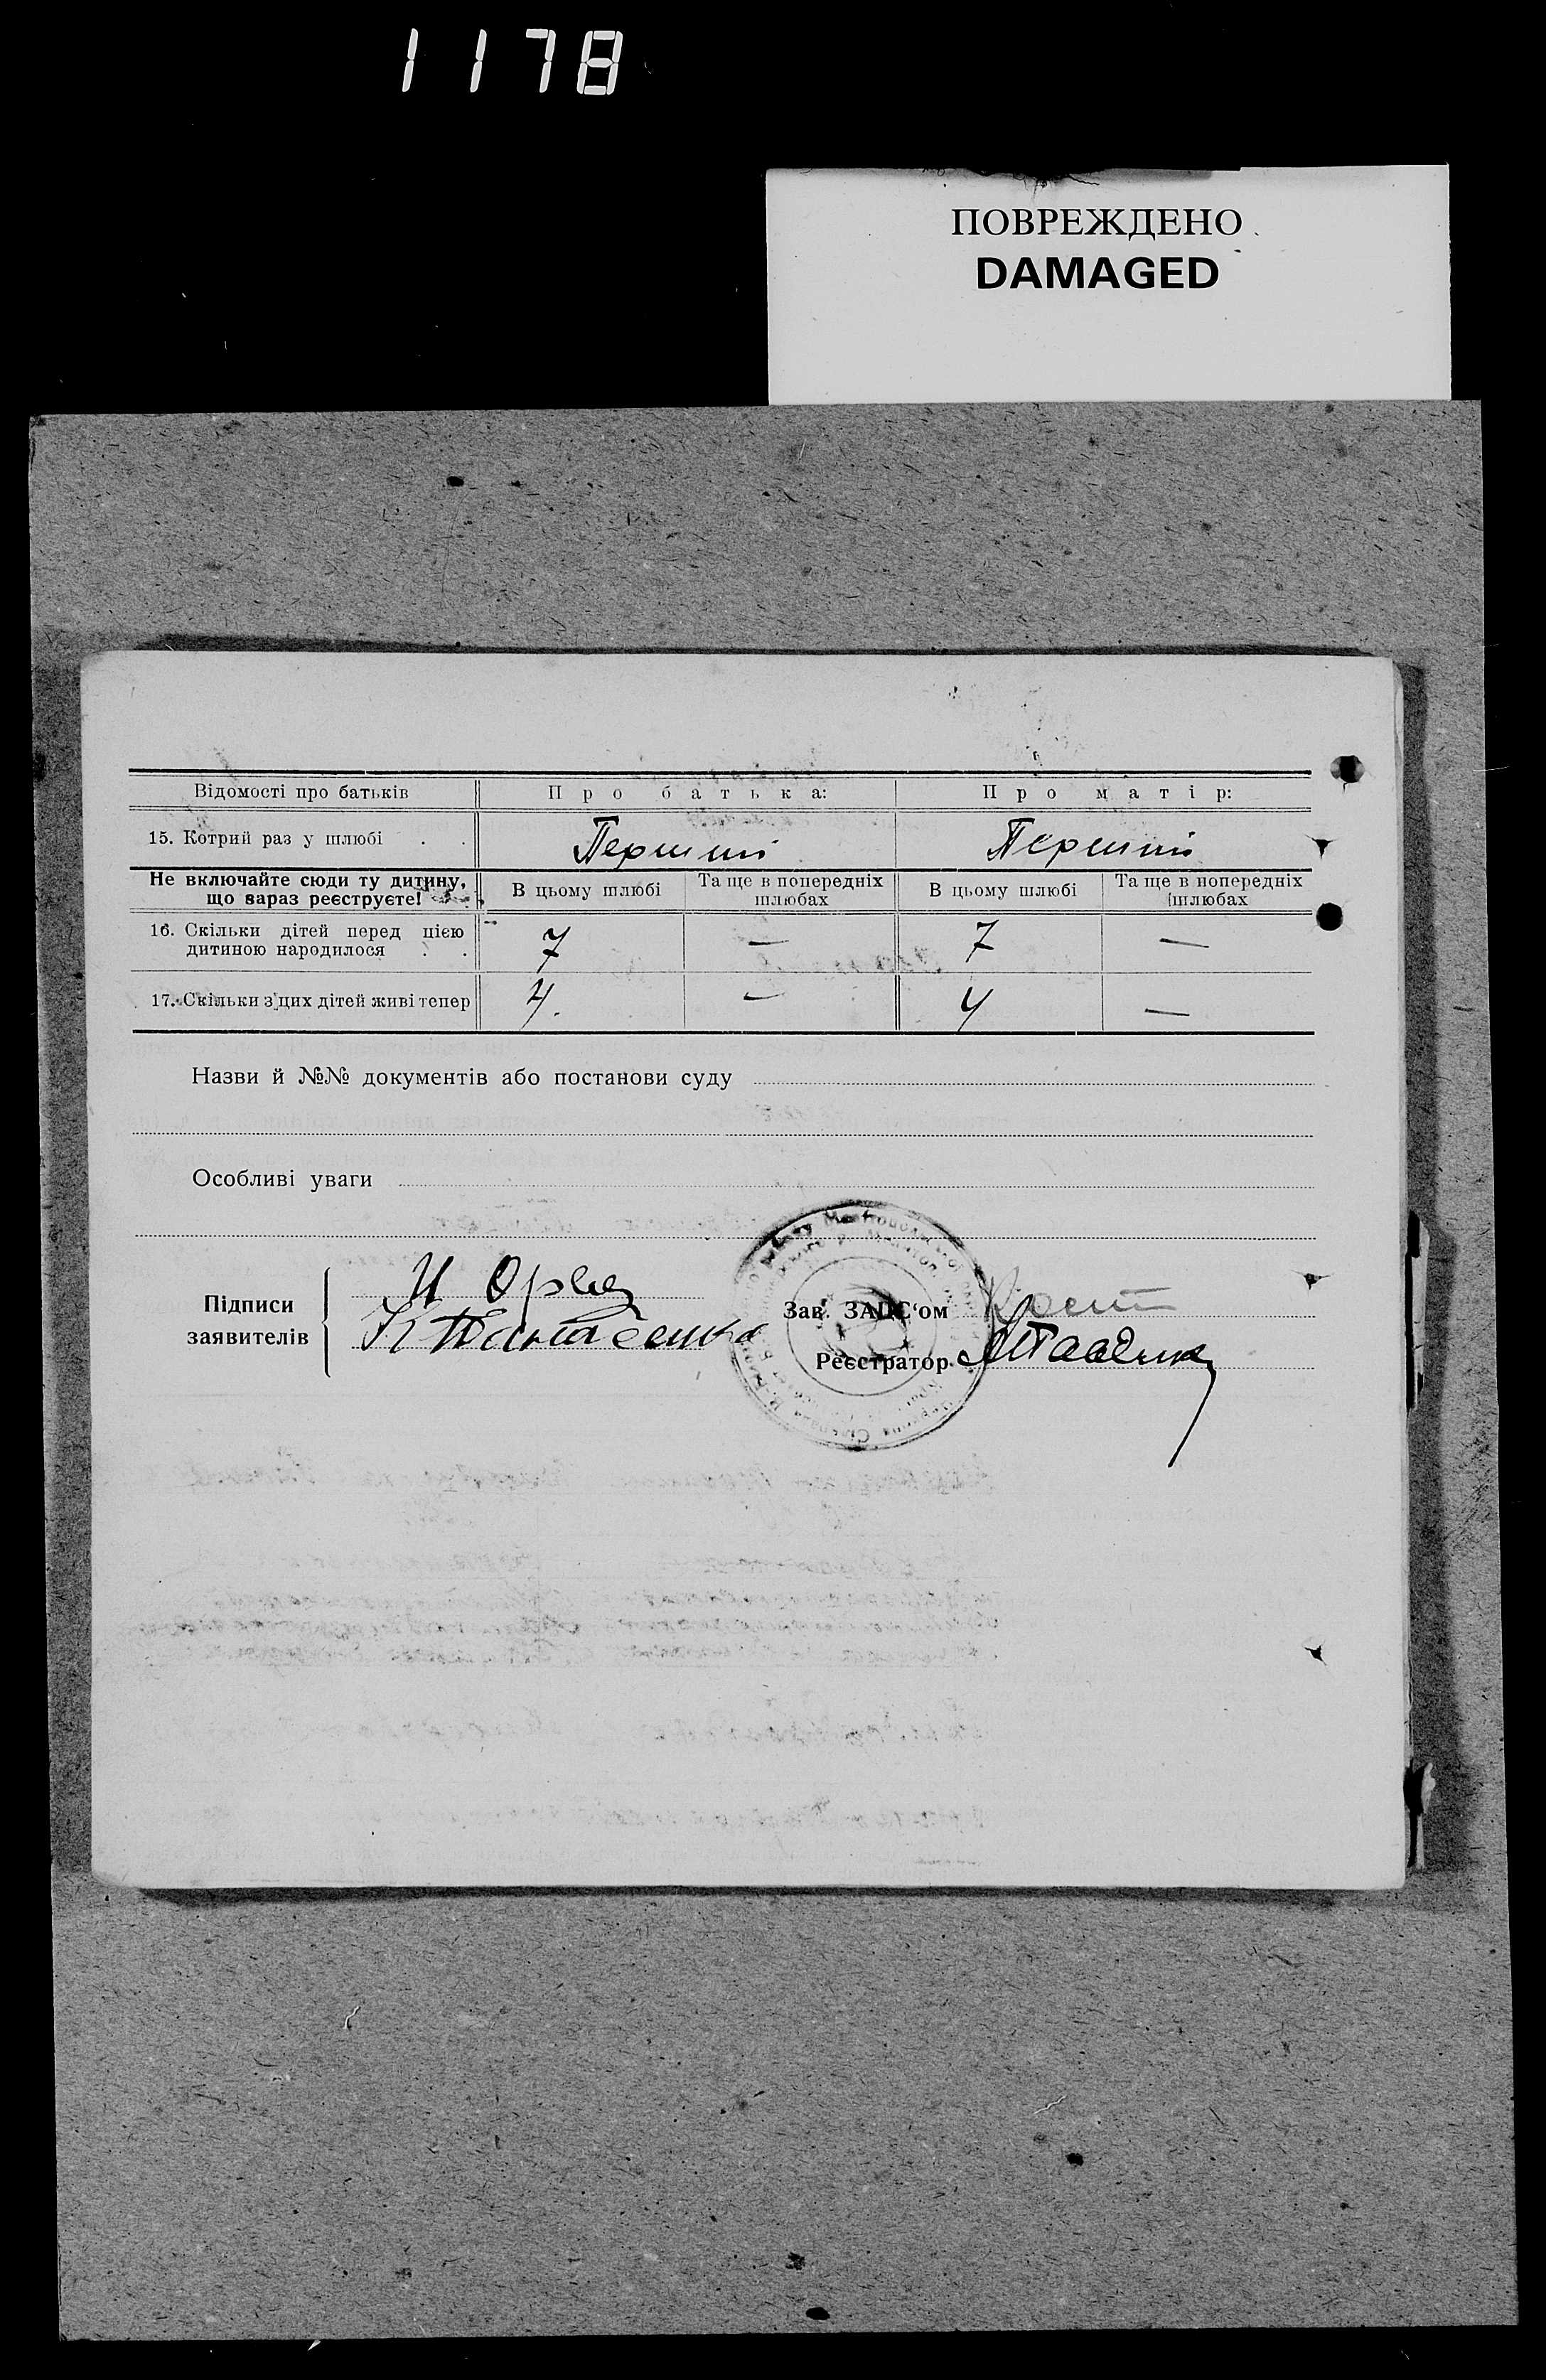 1178
ПОВРЕЖДЕНО
DAMAGED
Відомості про батьків Про батька: Про матір:
15. Котрий раз у шлюбі . . Перший Перший
Не включайте сюди ту дитину, що зараз реєструєте!
В цьому шлюбі Та ще в попередніх шлюбах В цьому шлюбі Та ще в попередніх шлюбах
16. Скільки дітей перед цією
дитиною народилося . . 7 — 7 —
17. Скільки з цих дітей живі тепер 4. — 4 —
Назви й №№ документів або постанови суду
Особливі уваги
Підписи
заявителів
Зав. ЗАЦС‘ом
Реєстратор